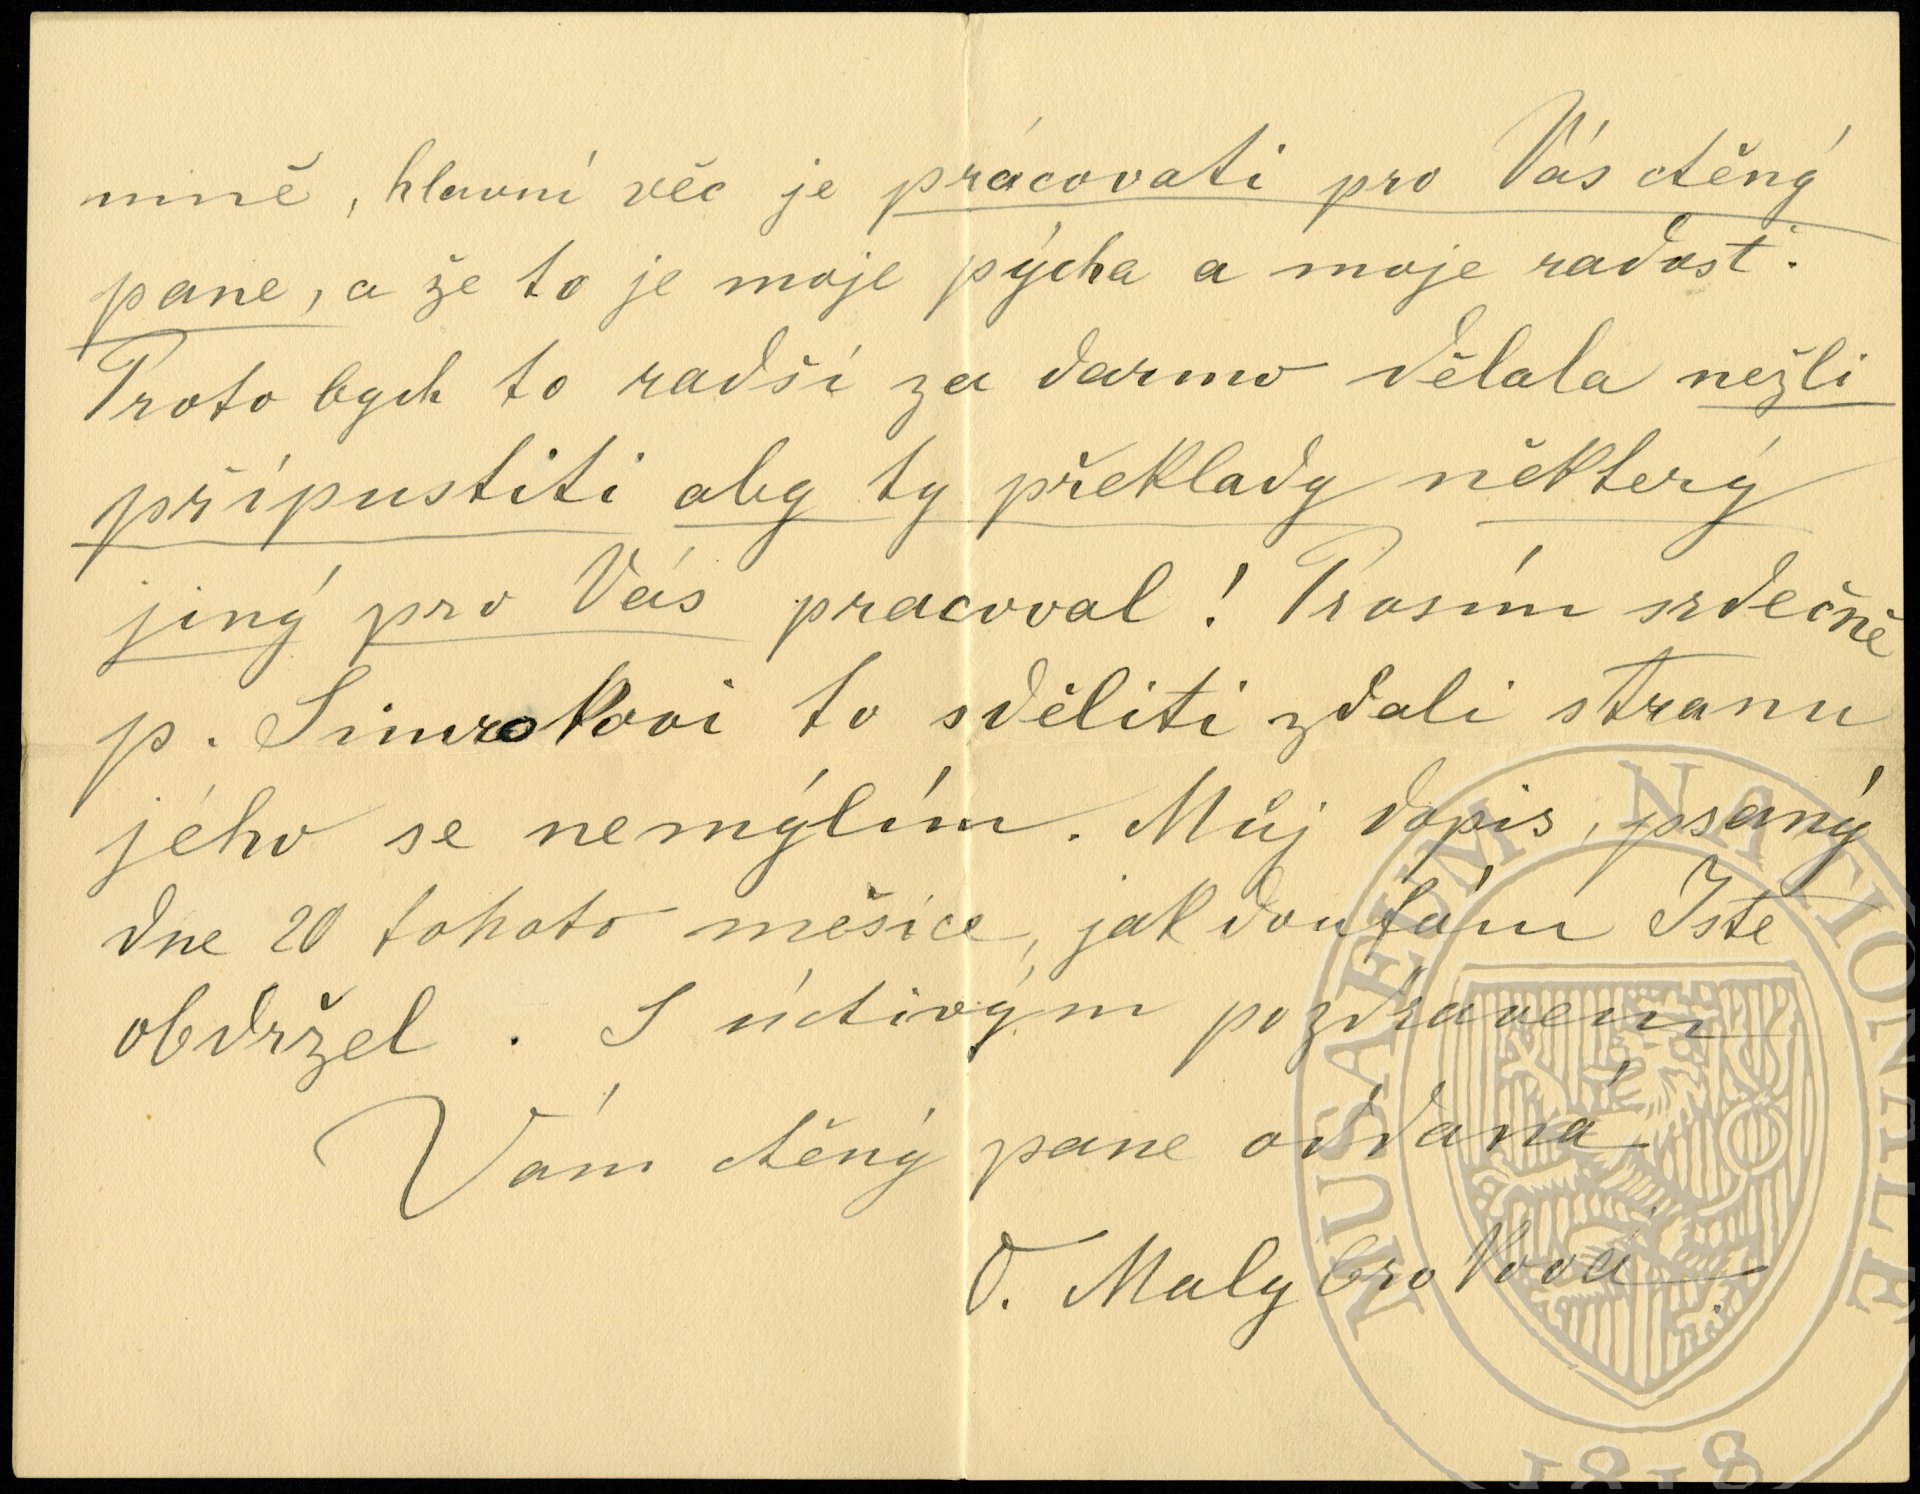 mně, hlavní věc je prácovati pro Vás ctěný
pane, a že to je moje pýcha a moje radost.
Proto bych to radší za darmo dělala nežli
přípustiti aby ty překlady některý
jiný pro Vás pracoval! Prosím srdečně
p. Simrokovi to sděliti zdali stranu
jého se nemýlím. Můj dopis, psaný
dne 20 tohoto měsíce, jak doufám Jste
obdržel. S úctivým pozdravem
Vám ctěný pane oddaná
O. Malybrokova
MUSAEUM NATIONALE
1818